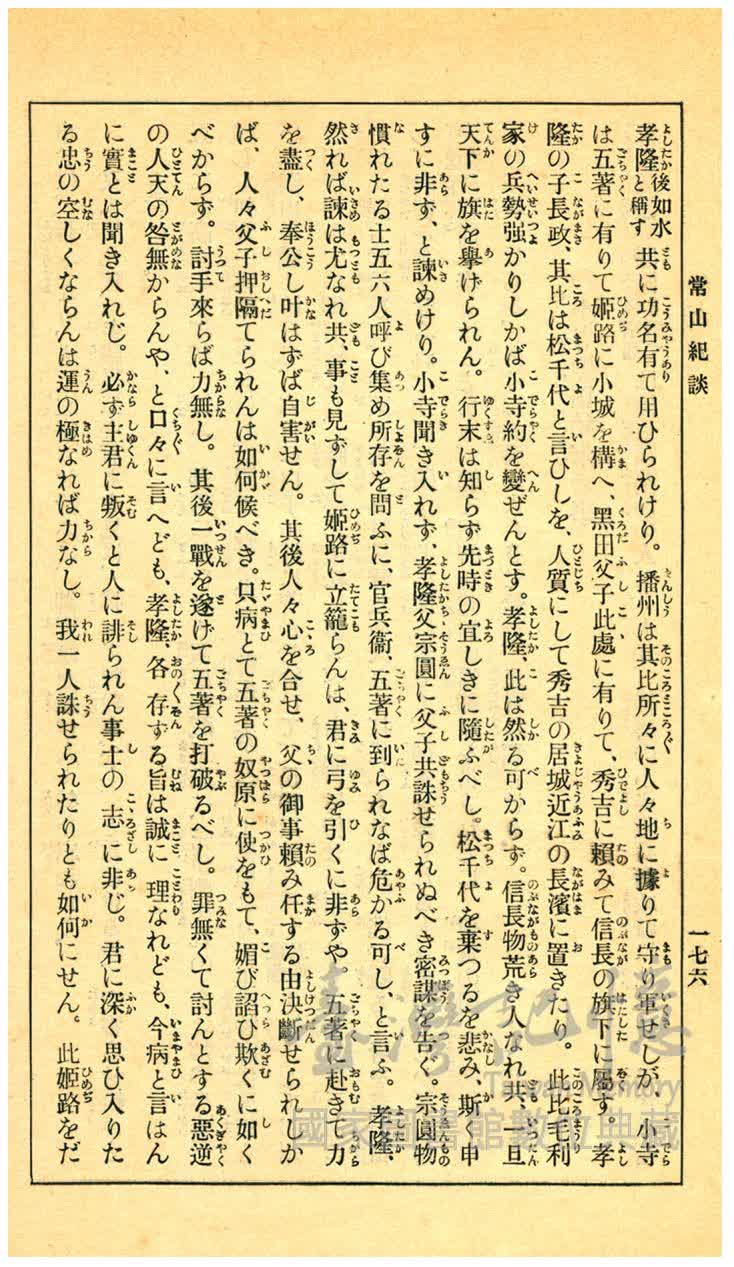 常山紀談
一七六
孝隆後如水と稱す共に功名有て用ひられけり。播州は其比所々に人々地に據りて守り軍せしが、小寺
は五著に有りて姬路に小城を構へ、黑田父子此處に有りて、秀吉に賴みて信長の旗下に屬す。孝
隆の子長政、其比は松千代と言ひしを、人質にして秀吉の居城近江の長濱に置きたり。此比毛利
家の兵勢強かりしかば小寺約を變ぜんとす。孝隆、此は然る可からず。信長物荒き人なれ共、一旦
天下に旗を擧げられん。行末は知らず先時の宜しきに隨ふべし。松千代を棄つるを悲み、斯く申
すに非ず、と諫めけり。小寺聞き入れず、孝隆父宗圓に父子共誅せられぬべき密謀を告ぐ。宗圓物
慣れたる士五六人呼び集め所存を問ふに、官兵衞、五著に到られなば危かる可し、と言ふ。孝隆、
然れば諫は尤なれ共、事も見ずして姬路に立籠らんは、君に弓を引くに非ずや。五著に赴きて力
を盡し、奉公し叶はずば自害せん。其後人々心を合せ、父の御事賴み仟する由決斷せられしか
ば、人々父子押隔てられんは如何候べき。只病とて五著の奴原に使をもて、媚び諂ひ欺くに如く
べからず。討手來らば力無し。其後一戰を遂げて五著を打破るべし。罪無くて討んとする惡逆
の人天の咎無からんや、と口々に言へども、孝隆、各存ずる旨は誠に理なれども、今病と言はん
に實とは聞き入れじ。必ず主君に叛くと人に誹られん事士の志に非じ。君に深く思ひ入りた
る忠の空しくならんは運の極なれば力なし。我一人誅せられたりとも如何にせん。此姬路をだ
臺灣記憶
Taiwan Memory
國家圖書館數位典藏